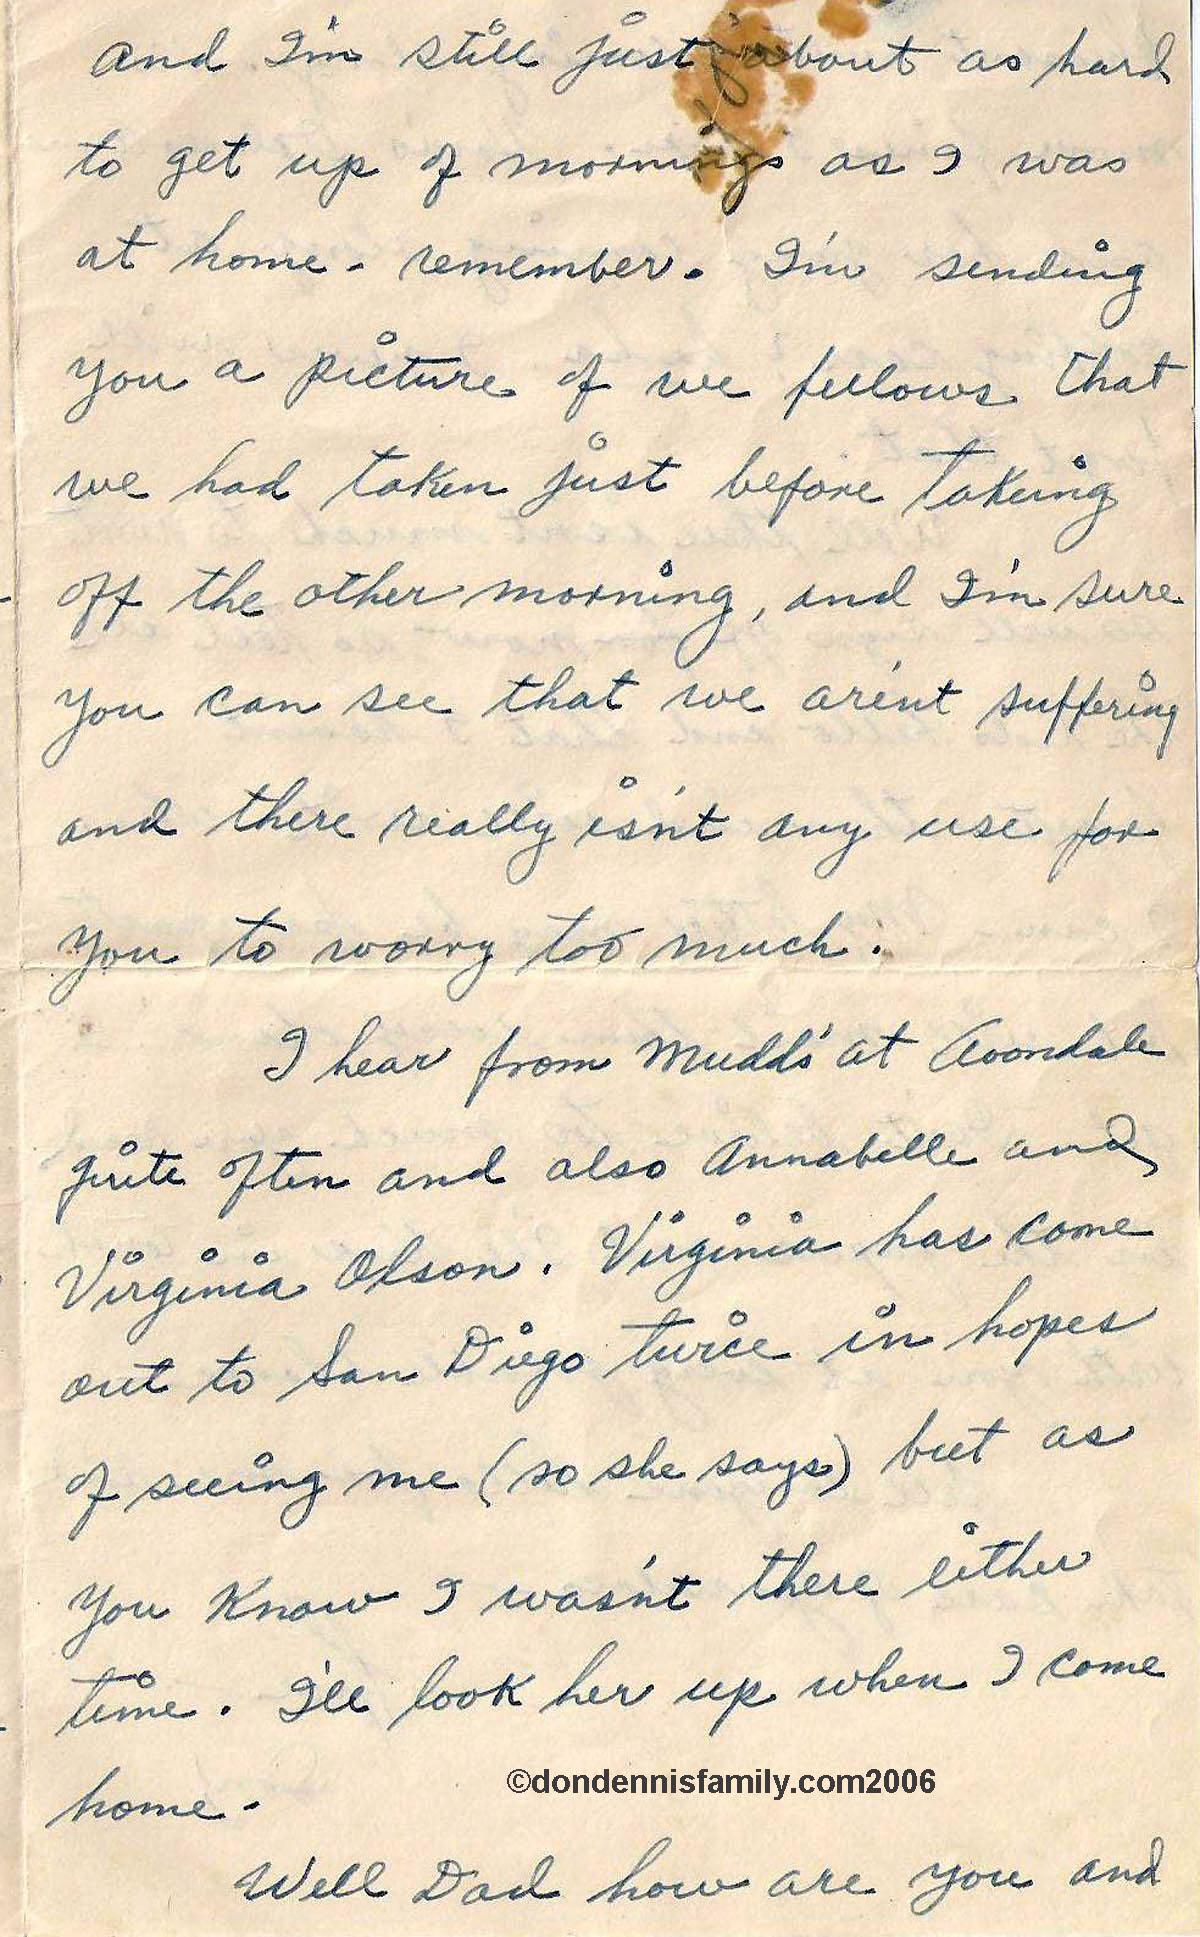 and I'm still just about as hard
to get up of mornings as I was
at home - remember. I'm sending
you a picture of we fellows that
we had taken just before takeing
off the other morning, and I'm sure
you can see that we are'nt suffering
and there really is'nt any use for
you to worry too much.
I hear from Mudds' at Avondale
quite often and also Annabelle and
Virginia Olson. Virginia has come
out to San Diego twice in hopes
of seeing me (so she says) but as
you know I was'nt there either
time. I'll look her up when I come
home.
©dondennisfamily.com2006
Well Dad how are you and